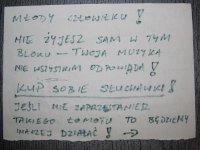 MŁODY CZŁOWIEKU !
NIE ŻYJESZ SAM W TYM
BLOKU – TWOJA MUZYKA
NIE WSZYSTKIM ODPOWIADA !
KUP SOBIE SŁUCHAWKI !
JEŚLI NIE ZAPRZESTANIESZ
TAKIEGO ŁOMOTU TO BĘDZIEMY
INACZEJ DZIAŁAĆ ! →